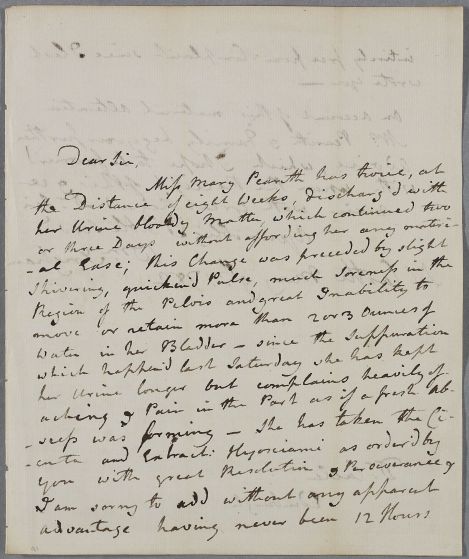 Dear Sir,
Miss Mary Pearith has twice, at
the Distance of eight Weeks, discharg'd with
her Urine bloody Matter which continued two
or three Days without affording her any materi-
-al Ease; this Change was preceded by slight
Shivering, quicken'd Pulse, much Soreness in the
Region of the Pelvis and great Inability to
move or retain more than 2 or 3 Ounces of
Water in her Bladder - since the Suppuration
which happen'd last Saturday she has kept
her Urine longer but complains heavily of
acheing & Pain in the Part as if a fresh Ab-
-scess was forming - She has taken the Ci-
-cuta and Extract: Hyosciami as order'd by
you with great Resolution & Perseverance &
I am sorry to add without any apparent
advantage having never been 12 Hours